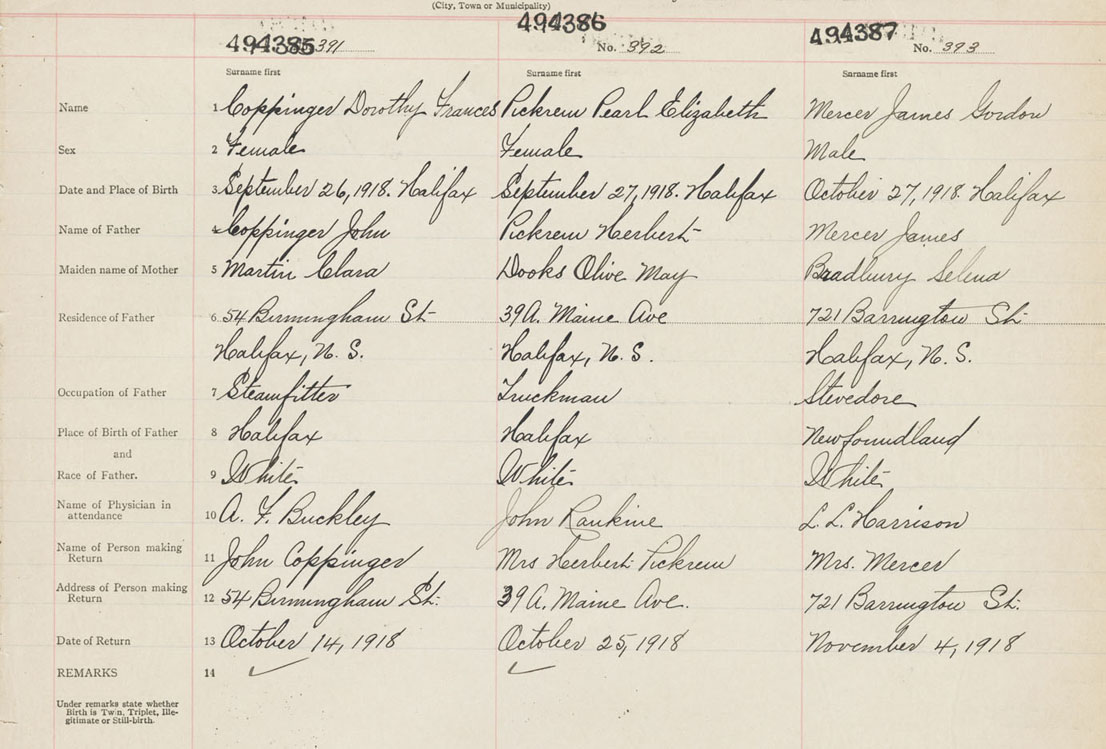 (City, Town or Municipality)
494385 391 494386 No. 392 494387 No. 393
Surname first Surname first Surname first
Name 1 Coppinger Dorothy Frances Pickrem Pearl Elizabeth Mercer James Gordon
Sex 2 Female Female Male
Date and Place of Birth 3 September 26, 1918. Halifax September 27, 1918. Halifax October 27, 1918. Halifax
Name of Father 4 Coppinger John Pickrem Herbert Mercer James
Maiden name of Mother 5 Martin Clara Dooks Olive May Bradbury Selena
Residence of Father 6 54 Birmingham St. 39A. Maine Ave 721 Barrington St.
Halifax, N. S. Halifax, N. S. Halifax, N. S.
Occupation of Father 7 Steamfitter Truckman Stevedore
Place of Birth of Father 8 Halifax Halifax Newfoundland
and
Race of Father. 9 White White White
Name of Physician in
attendance 10 A. F. Buckley John Rankine L. L. Harrison
Name of Person making
Return 11 John Coppinger Mrs Herbert Pickrem Mrs. Mercer
Address of Person making
Return 12 54 Birmingham St. 39 A. Maine Ave. 721 Barrington St.
Date of Return 13 October 14, 1918 October 25, 1918 November 4, 1918
REMARKS 14 ✓ ✓
Under remarks state whether
Birth is Twin, Triplet, Ille-
gitimate or Still-birth.